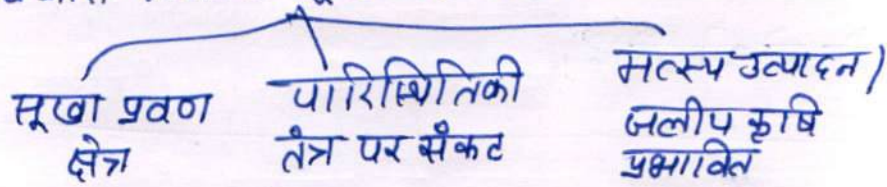 सूखा प्रवण
क्षेत्र
पारिस्थितिकी
तंत्र पर संकट
मत्स्य उत्पादन/
जलीय कृषि
प्रभावित